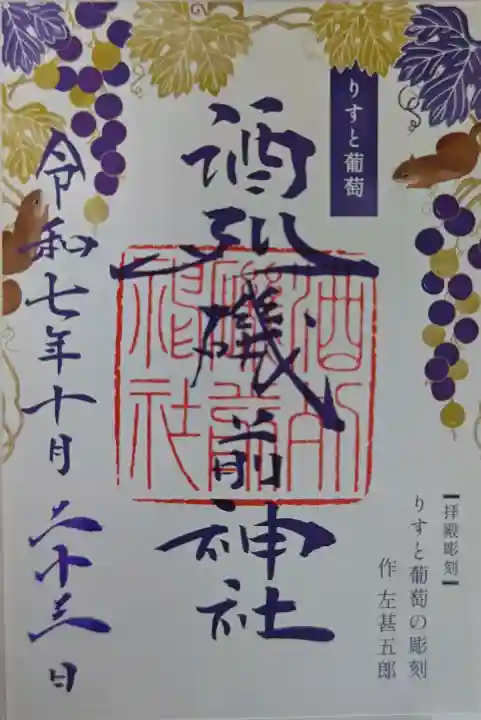 りすと葡萄
酒列磯前神社
令和七年十月二十三日
【拝殿彫刻】
りすと葡萄の彫刻
作 左甚五郎
酒列
磯前
神社